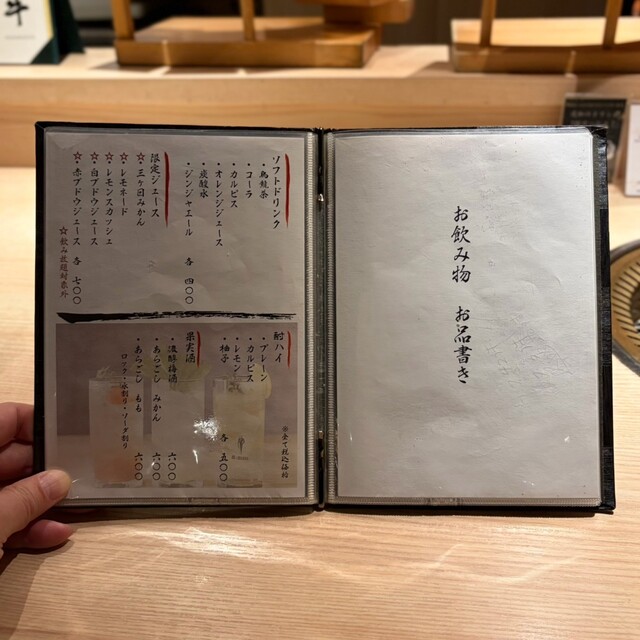 お飲み物 お品書き
ソフトドリンク
・烏龍茶
・コーラ
・カルピス
・オレンジジュース
・炭酸水
・ジンジャエール 各 四〇〇
限定ジュース
☆三ヶ日みかん
☆レモネード
☆レモンスカッシュ
☆白ブドウジュース
☆赤ブドウジュース 各 七〇〇
☆飲み放題対象外
酎ハイ
・プレーン
・カルピス
・レモン
・柚子 各 五〇〇
果実酒
・濃醇梅酒 六〇〇
・あらごし みかん 六〇〇
・あらごし もも 六〇〇
ロック・水割り・ソーダ割り
※全て税込価格
牛